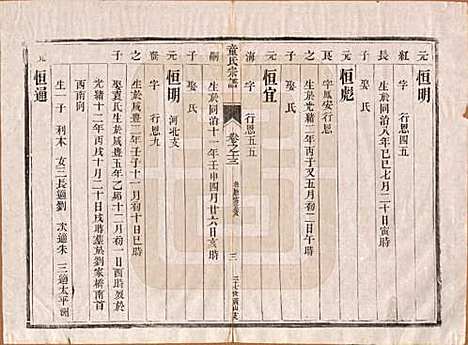 元 恒明
紅 字 行恩四五
長 生於同治八年己巳七月二十日寅時
子 娶氏
元 恒彪
良 字鳳安行恩
之 生於光緒二年丙子又五月初二日午時
子 娶氏
元 恒宜
海 字 行恩五五
嗣 生於同治十一年壬申四月廿六亥時
子 娶氏
童氏宗譜
卷之十三
三
元 恒明 河北支
字 行恩九
之 生於咸豐二年壬子十一月初十日巳時
子 娶袁氏生於咸豐五年乙卯十二月初一日酉時歿於
光緒十二年丙戌十月二十日戌時墓於劉家橋南首
西南向
生一子 利木 女三長適劉 次適朱 三適太平洲
元 恒通